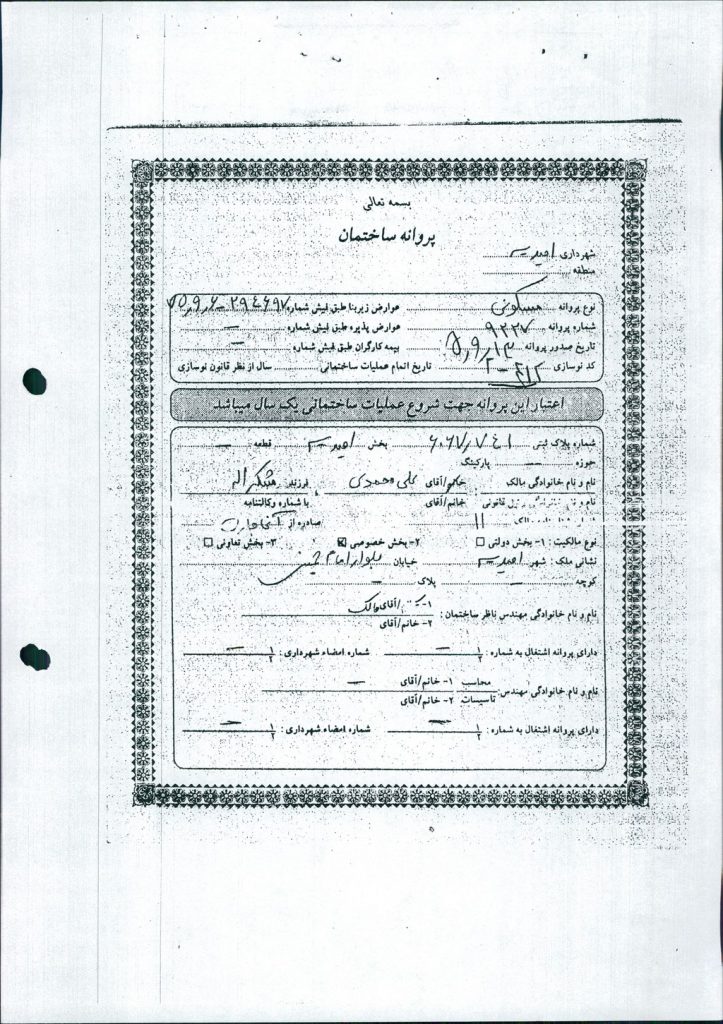 بسمه تعالی
پروانه ساختمان
شهرداری امیدیه
منطقه
نوع پروانه مسکونی عوارض زیربنا طبق فیش شماره
شماره پروانه ۹۲۲۷ عوارض پذیره طبق فیش شماره —
تاریخ صدور پروانه بیمه کارگران طبق فیش شماره —
کد نوسازی تاریخ اتمام عملیات ساختمانی سال از نظر قانون نوسازی
اعتبار این پروانه جهت شروع عملیات ساختمانی یک سال میباشد
شماره پلاک ثبتی بخش امیدیه قطعه —
حوزه — پارکینگ
نام و نام خانوادگی مالک خانم/آقای علی محمدی فرزند
نام و نام خانوادگی وکیل قانونی خانم/آقای با شماره وکالتنامه
۱۱ صادره از
نوع مالکیت : ۱- بخش دولتی ۲- بخش خصوصی ۳- بخش تعاونی
نشانی ملک : شهر امیدیه خیابان بلوار امام خمینی
کوچه — پلاک —
نام و نام خانوادگی مهندس ناظر ساختمان : ۱- خانم/آقای مالک
۲- خانم/آقای
دارای پروانه اشتغال به شماره : ۱ — شماره امضاء شهرداری : ۱ —
۲ ۲
نام و نام خانوادگی مهندس: محاسب ۱- خانم/آقای —
تاسیسات ۲- خانم/آقای
دارای پروانه اشتغال به شماره : ۱ — شماره امضاء شهرداری : ۱ —
۲ ۲